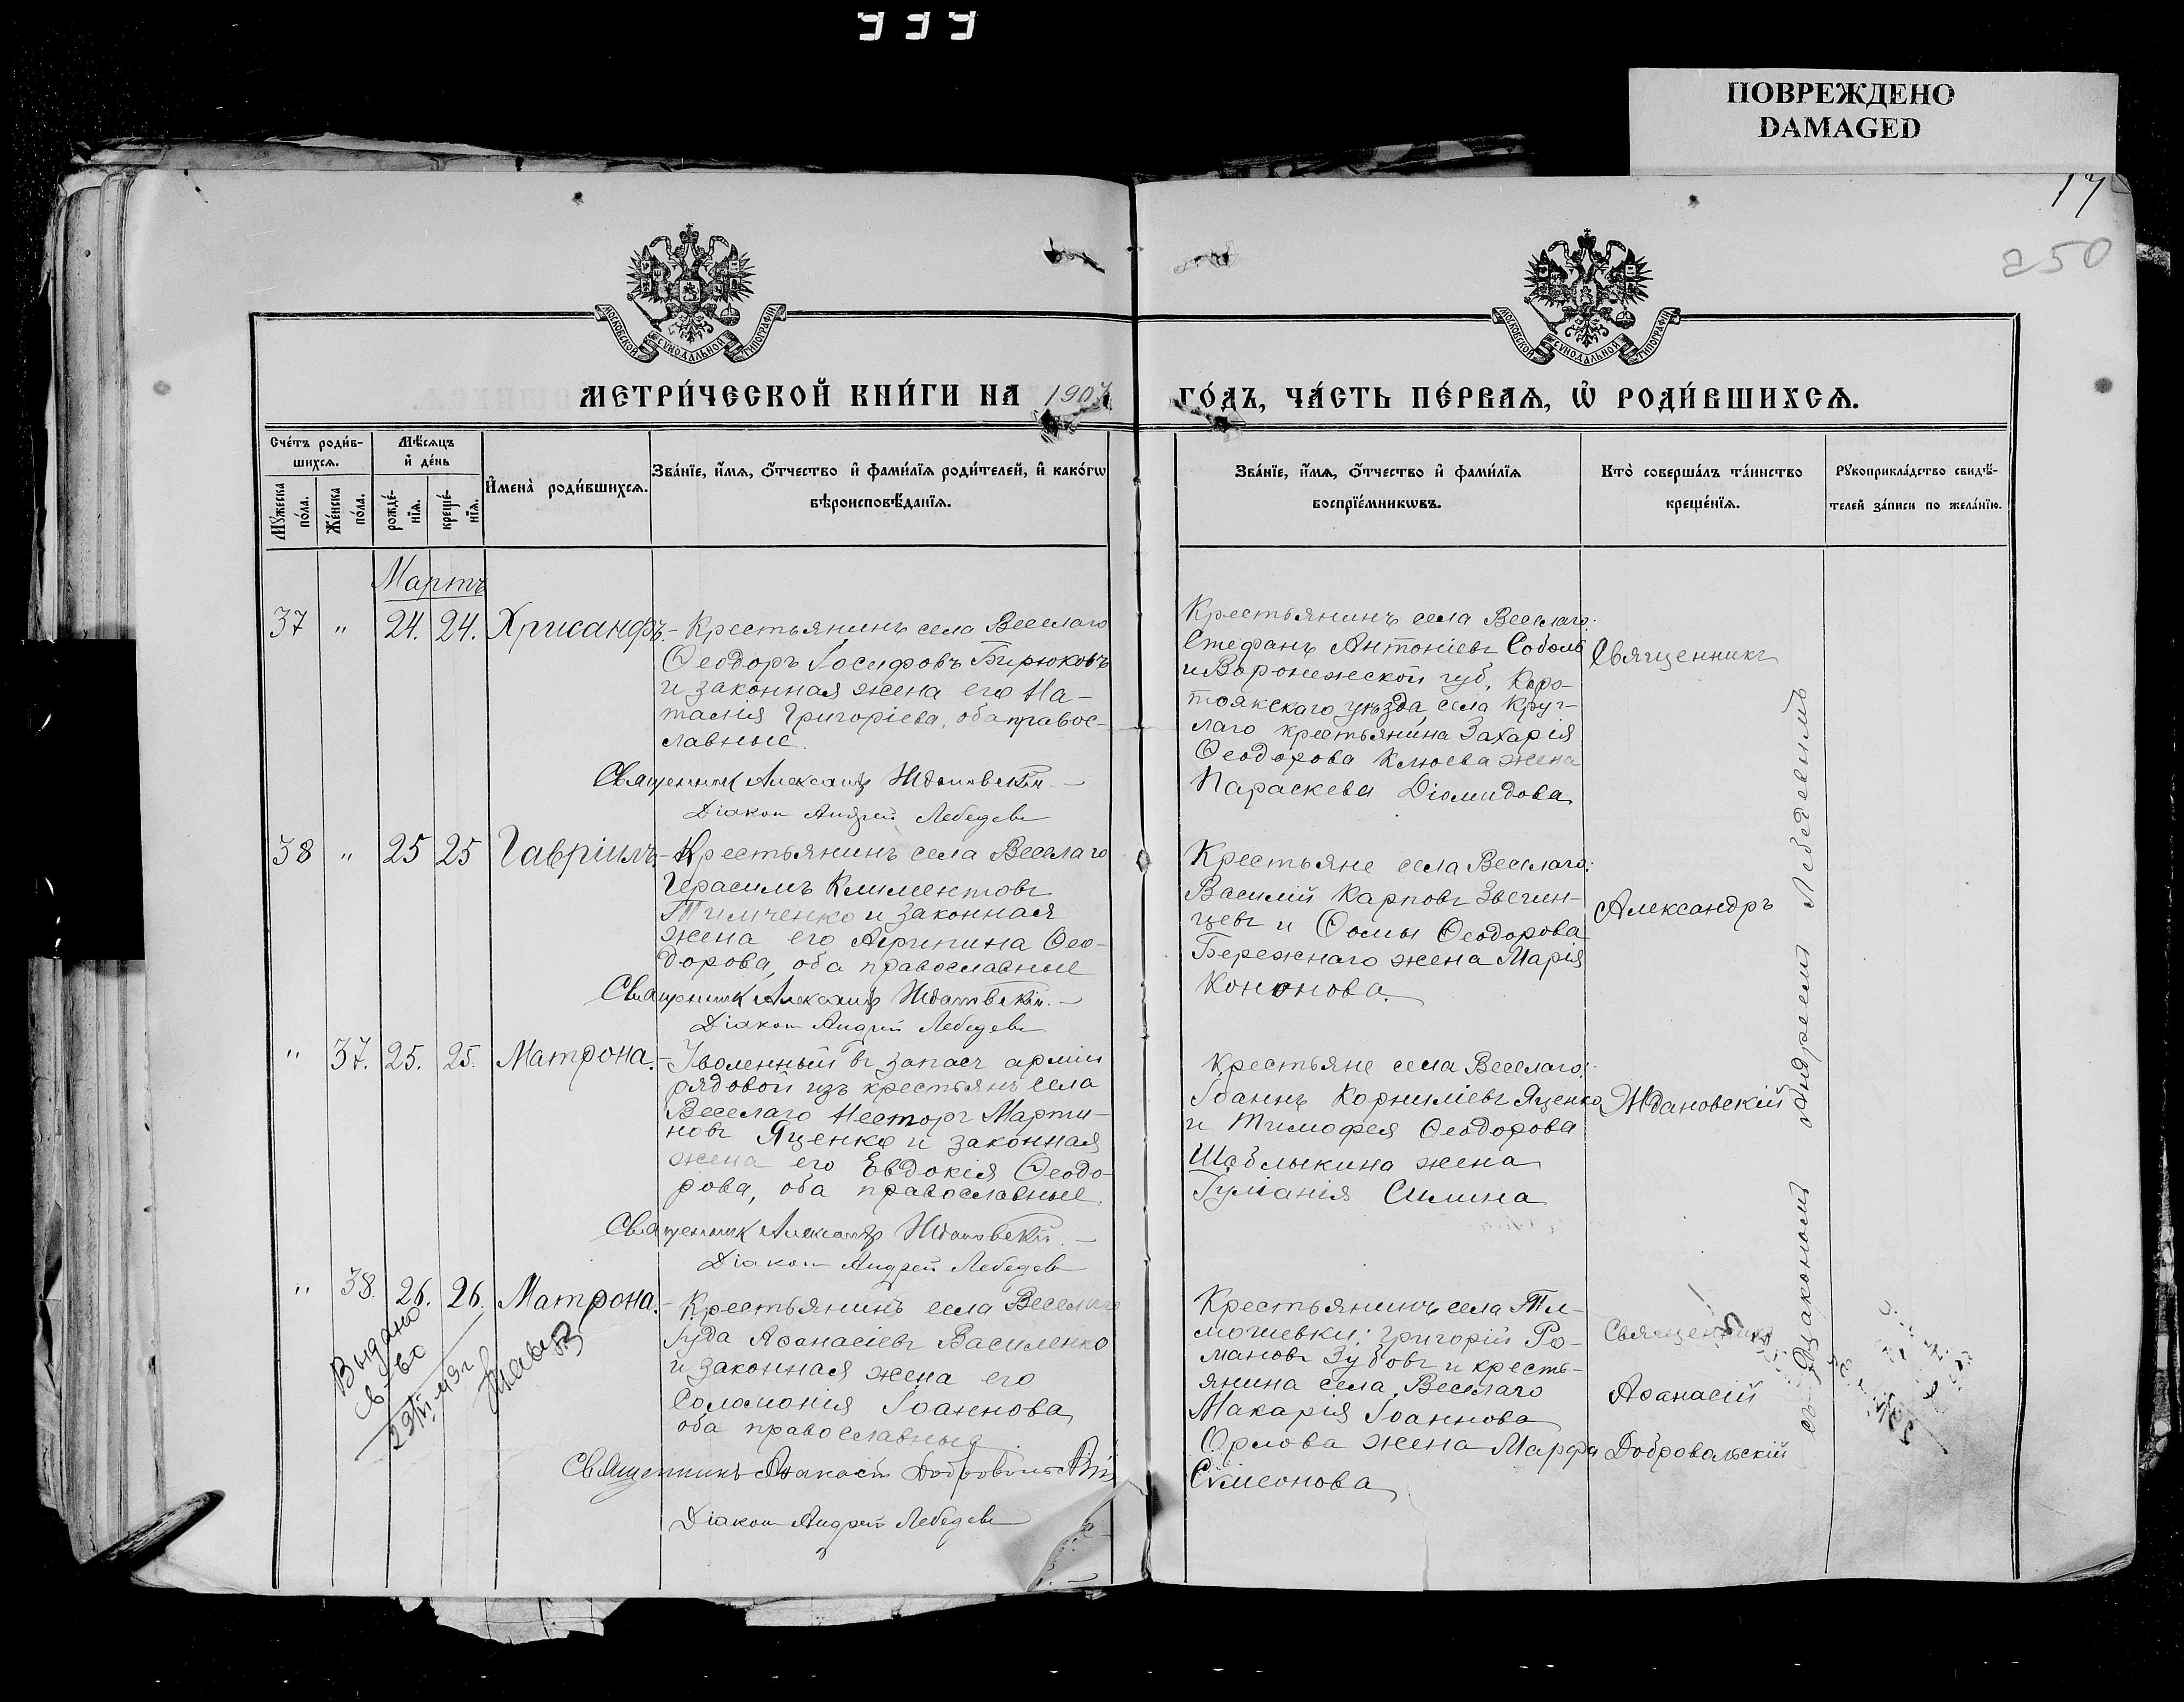 ПОВРЕЖДЕНО
DAMAGED
17
250
МОСКОВСКОЙ СУНОДАЛЬНОЙ ТИПОГРАФІИ
МОСКОВСКОЙ СУНОДАЛЬНОЙ ТИПОГРАФІИ
МЕТРИ́ЧЕСКОЙ КНИ́ГИ НА 1907
ГО́ДЪ, ЧА́СТЬ ПЕ́РВАѦ, Ѡ҆ РОДИ́ВШИХСѦ.
Сче́тъ роди́в-
шихсѧ.
Мѣ́сѧцъ
и҆ де́нь
Мꙋ́жеска
по́ла.
Же́нска
по́ла.
рожде́-
нїѧ.
креще́-
нїѧ.
И҆мена̀ роди́вшихсѧ.
Зва́нїе, и҆́мѧ, ѻ҆́тчество и҆ фами́лїѧ роди́телей, и҆ како́гѡ
вѣроисповѣ́данїѧ.
Зва́нїе, и҆́мѧ, ѻ҆́тчество и҆ фами́лїѧ
воспрїе́мникѡвъ.
Кто̀ соверша́лъ та́инство
креще́нїѧ.
Рꙋкоприкла́дство свидѣ́-
телей за́писи по жела́нїю.
Мартъ
37 " 24. 24. Хрисанфъ.- Крестьянинъ села Веселаго
Ѳеодоръ Іосифовъ Бирюковъ
и законная жена его На-
талія Григоріева, оба правос-
лавные.
Священникъ Александръ Ждановскій.-
Діаконъ Андрей Лебедевъ
Крестьянинъ села Веселаго:
Стефанъ Антоніевъ Соболь
и Воронежской губ. Коро-
тоякскаго уѣзда, села Круг-
лаго крестьянина Захарія
Ѳеодорова Клюева жена
Параскева Діомидова
Священникъ
38 " 25 25 Гавріилъ.- Крестьянинъ села Веселаго
Герасимъ Климентовъ
Тимченко и законная
жена его Агрипина Ѳео-
дорова, оба православные
Священникъ Александръ Ждановскій.-
Діаконъ Андрей Лебедевъ
Крестьяне села Веселаго:
Василій Карповъ Звегин-
цевъ и Ѳомы Ѳеодорова
Бережнаго жена Марія
Кононова.
Александръ
" 37. 25. 25. Матрона.- Уволенный въ запасъ арміи
рядовой изъ крестьянъ села
Веселаго Несторъ Марти-
новъ Яценко и законная
жена его Евдокія Ѳеодо-
рова, оба православные.
Священникъ Александръ Ждановскій.-
Діаконъ Андрей Лебедевъ
Крестьяне села Веселаго:
Іоаннъ Корниліевъ Яценко
и Тимофея Ѳеодорова
Шаблыкина жена
Іуліанія Силина
Ждановскій
" 38. 26. 26. Матрона.- Крестьянинъ села Веселаго
Іуда Аѳанасіевъ Василенко
и законная жена его
Соломонія Іоаннова,
оба православные
Священникъ Аѳанасій Добровольскій
Діаконъ Андрей Лебедевъ
Выдано
св-во
29/VI-49г
Крестьянинъ села Ти-
мошевки: Григорій Ро-
мановъ Зубовъ и кресть-
янина села Веселаго
Макарія Іоаннова
Орлова жена Марфа
Сѵмеонова
Священникъ
Аѳанасій
Добровольскій
съ Діакономъ Андреемъ Лебедевымъ